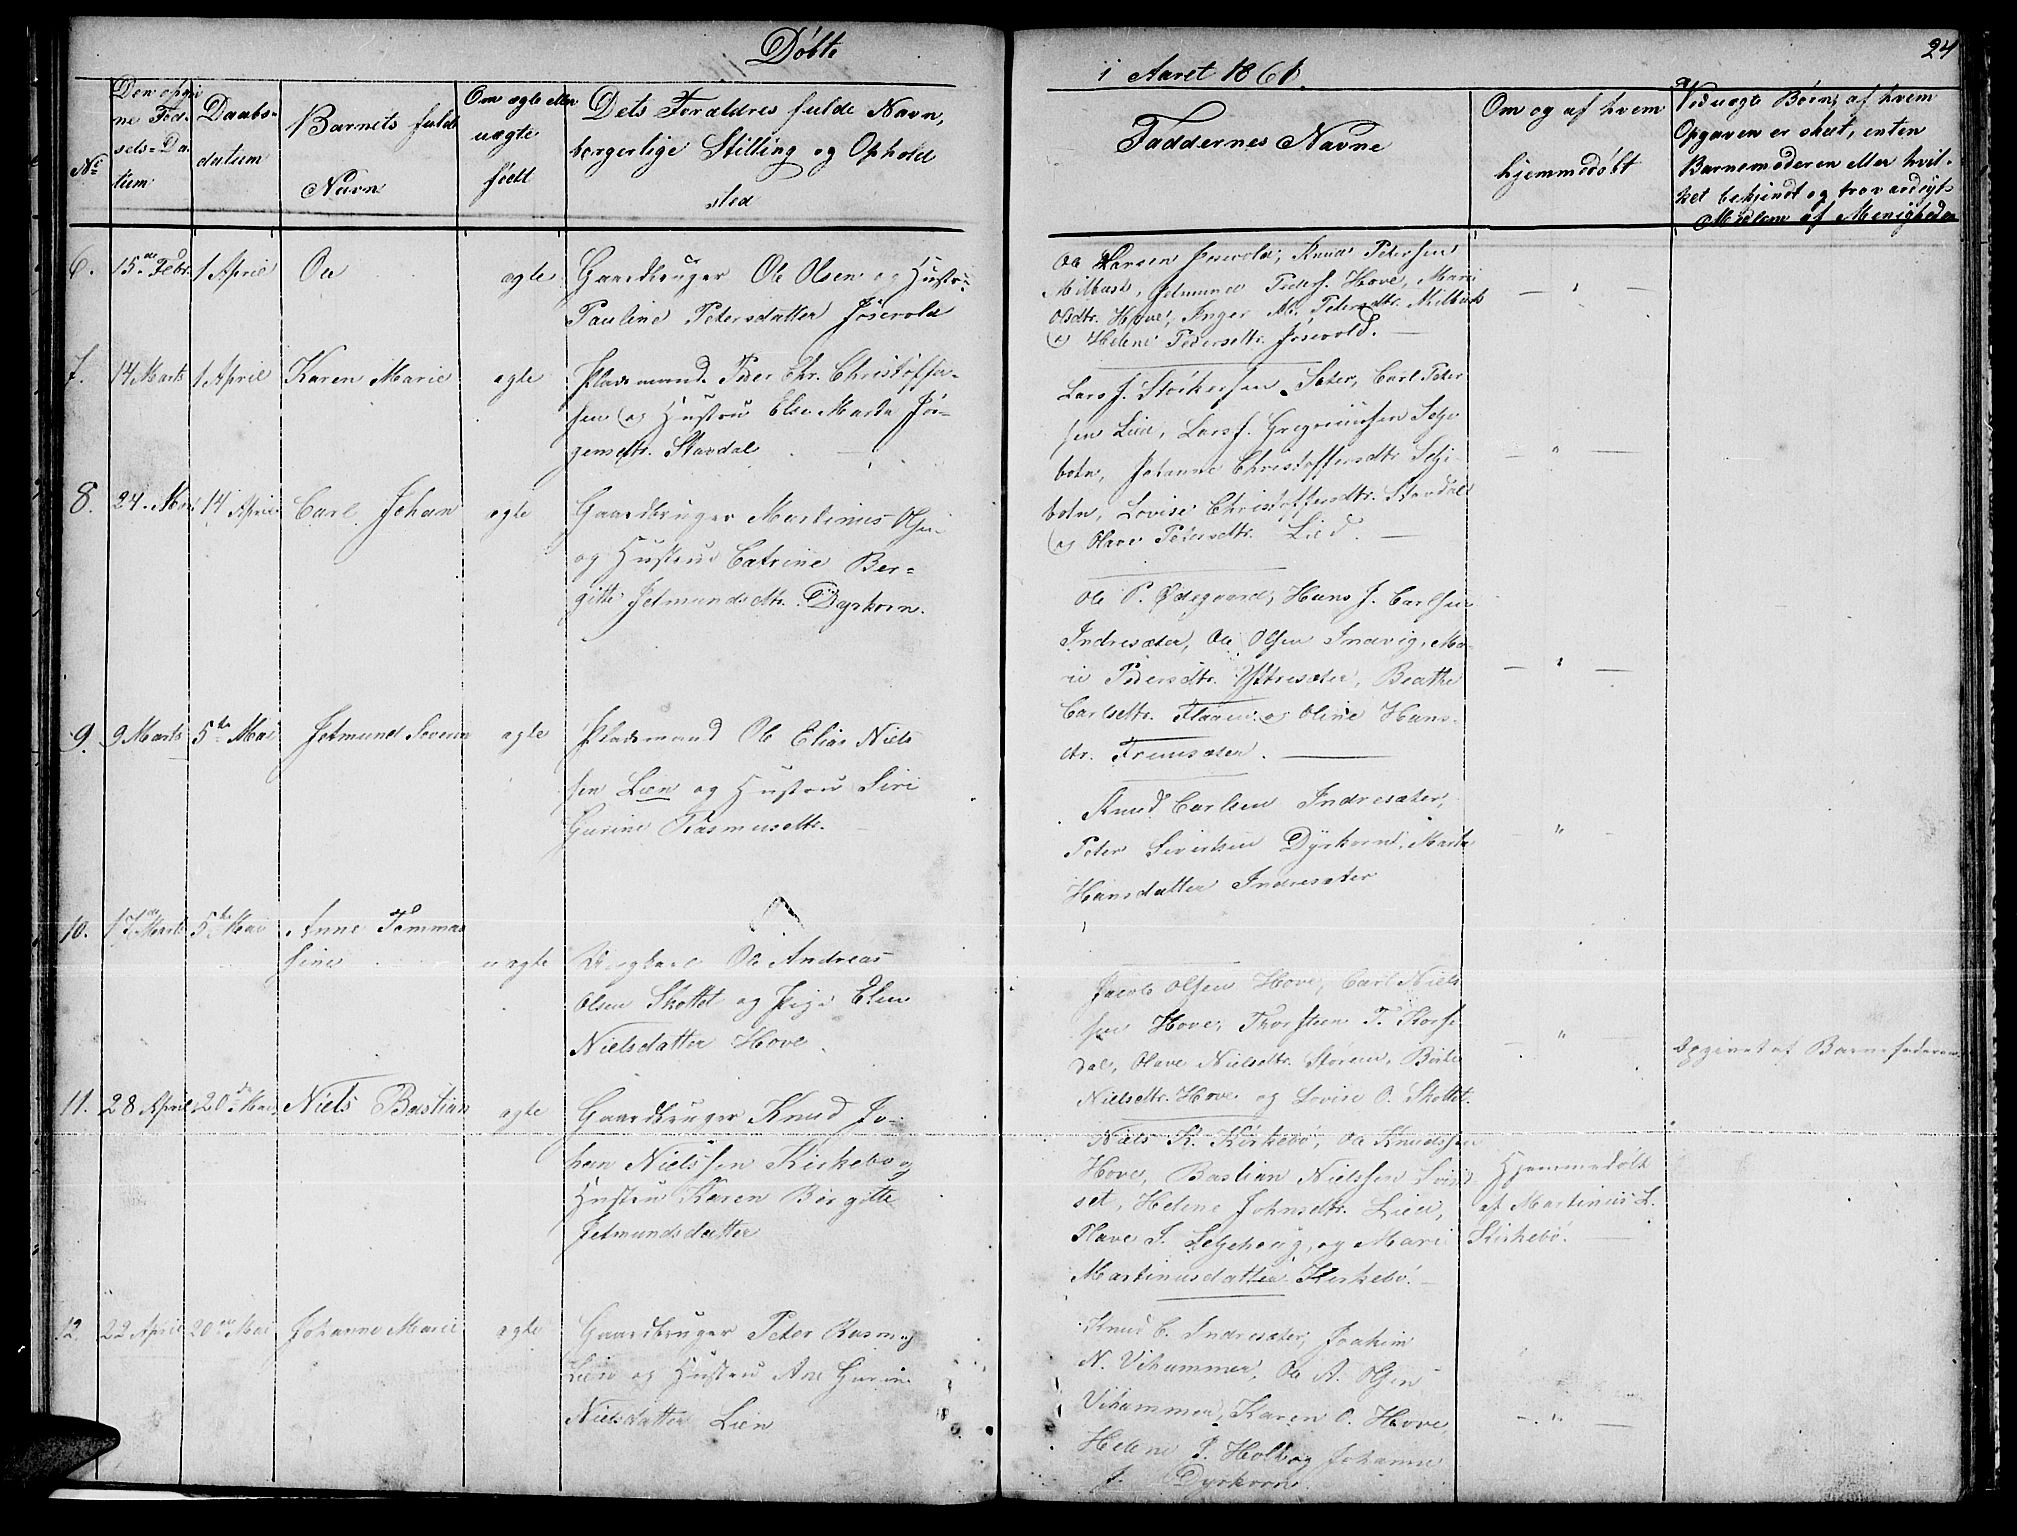 Døbte
i Aaret 1861.
24
No
Den opgi
ne Fød-
sels-Da
tum
Daabs-
datum
Barnets fulde
Navn
Om ægte eller
uægte
født
Dets Forældres fulde Navn,
borgerlige Stilling og Ophold
sted
Faddernes Navne
Om og af hvem
hjemmedøbt
Ved uægte Børn, af hvem
Opgaven er skeet, enten
Barnemoderen eller hvil-
ket bekjendt og troværdigt
Medlem af Menigheden
6.
15de Febr.
1 April
Oe
ægte
Gaardbruger Ole Olsen og Hustru
Pauline Petersdatter Jøsevold
Ole Larsen Jøsevold, Knud Petersen
Milbust, Jetmund Peders. Hove, Marie
Olsdtr. Hove, Inger M. Petersdtr. Milbust
og Helene Pedersdtr. Jøsevold. —
— " —
7.
14 Marts
1 April
Karen Marie
ægte
Pladsmand Peder Chr. Christoffer-
sen og Hustru Else Marta Jør-
gensdtr. Stavdal
Lars J. Størkersen Sæter, Carl Peter
sen Lied, Lars J. Gregoriussen Selje
botn, Johanne Christoffersdtr. Selje
botn, Lovise Christoffersdtr. Stavdal
og Olave Petersdtr. Lied. —
— " —
8.
24. Mar
14 April
Carl Johan
ægte
Gaardbruger Martinus Olsen
og Hustrue Catrine Ber-
gitte Jetmundsdtr. Dyrkorn.
Ole P. Ødegaard, Hans J. Carlsen
Indresæter, Ole Olsen Indvig, Ma-
rie Pedersdtr. Ystresæter, Beathe
Carlsdtr. Flaaen og Oline Hans-
dtr. Fremsæter. —
— " —
9.
9 Marts
5te Mai
Jetmund Severin
ægte
Pladsmand Ole Elias Niels
sen Lien og Hustru Siri
Gurine Rasmusdtr.
Knud Carlsen Indresæter,
Peter Sivertsen Dyrkorn, Marte
Hansdatter Indresæter
— " —
10.
17de Marts
5te Mai
Anne Tommas
sine
uægte
Ungkarl Ole Andreas
Olsen Skottet og Pige Elen
Nielsdatter Hove
Jacob Olsen Hove, Carl Niels
sen Hove, Thorsteen T. Korse
dal, Olave Nielsdtr. Storem, Birte
Nielsdtr. Hove og Lovise O. Skottet.
— " —
Opgivet af Barnefaderen
11.
28 April
20de Mai
Niels Bastian
ægte
Gaardbruger Knud Jo-
han Nielssen Kirkebø og
Hustru Karen Birgitte
Jetmundsdatter
Niels K. Kirkebø, Ole Knudssen
Hove, Bastian Nielssen
set, Helene Johnsdtr. Lien,
Olave S. Seljehaug, og Marie
Martinusdatter Kirkebø. —
Hjemmedøbt
af Martinus L.
Kirkebø. —
12.
22 April
20de Mai
Johanne Marie
ægte
Gaardbruger Peter Rasm.
Lien og Hustru Ane Gurine
Nielsdatter Lien
Knud C. Indresæter, Joakim
N. Vihammer, Ole A. Olsen
Vihammer, Karen O. Hove,
Helene P. Holt og Johanne
J. Dyrkorn
— " —